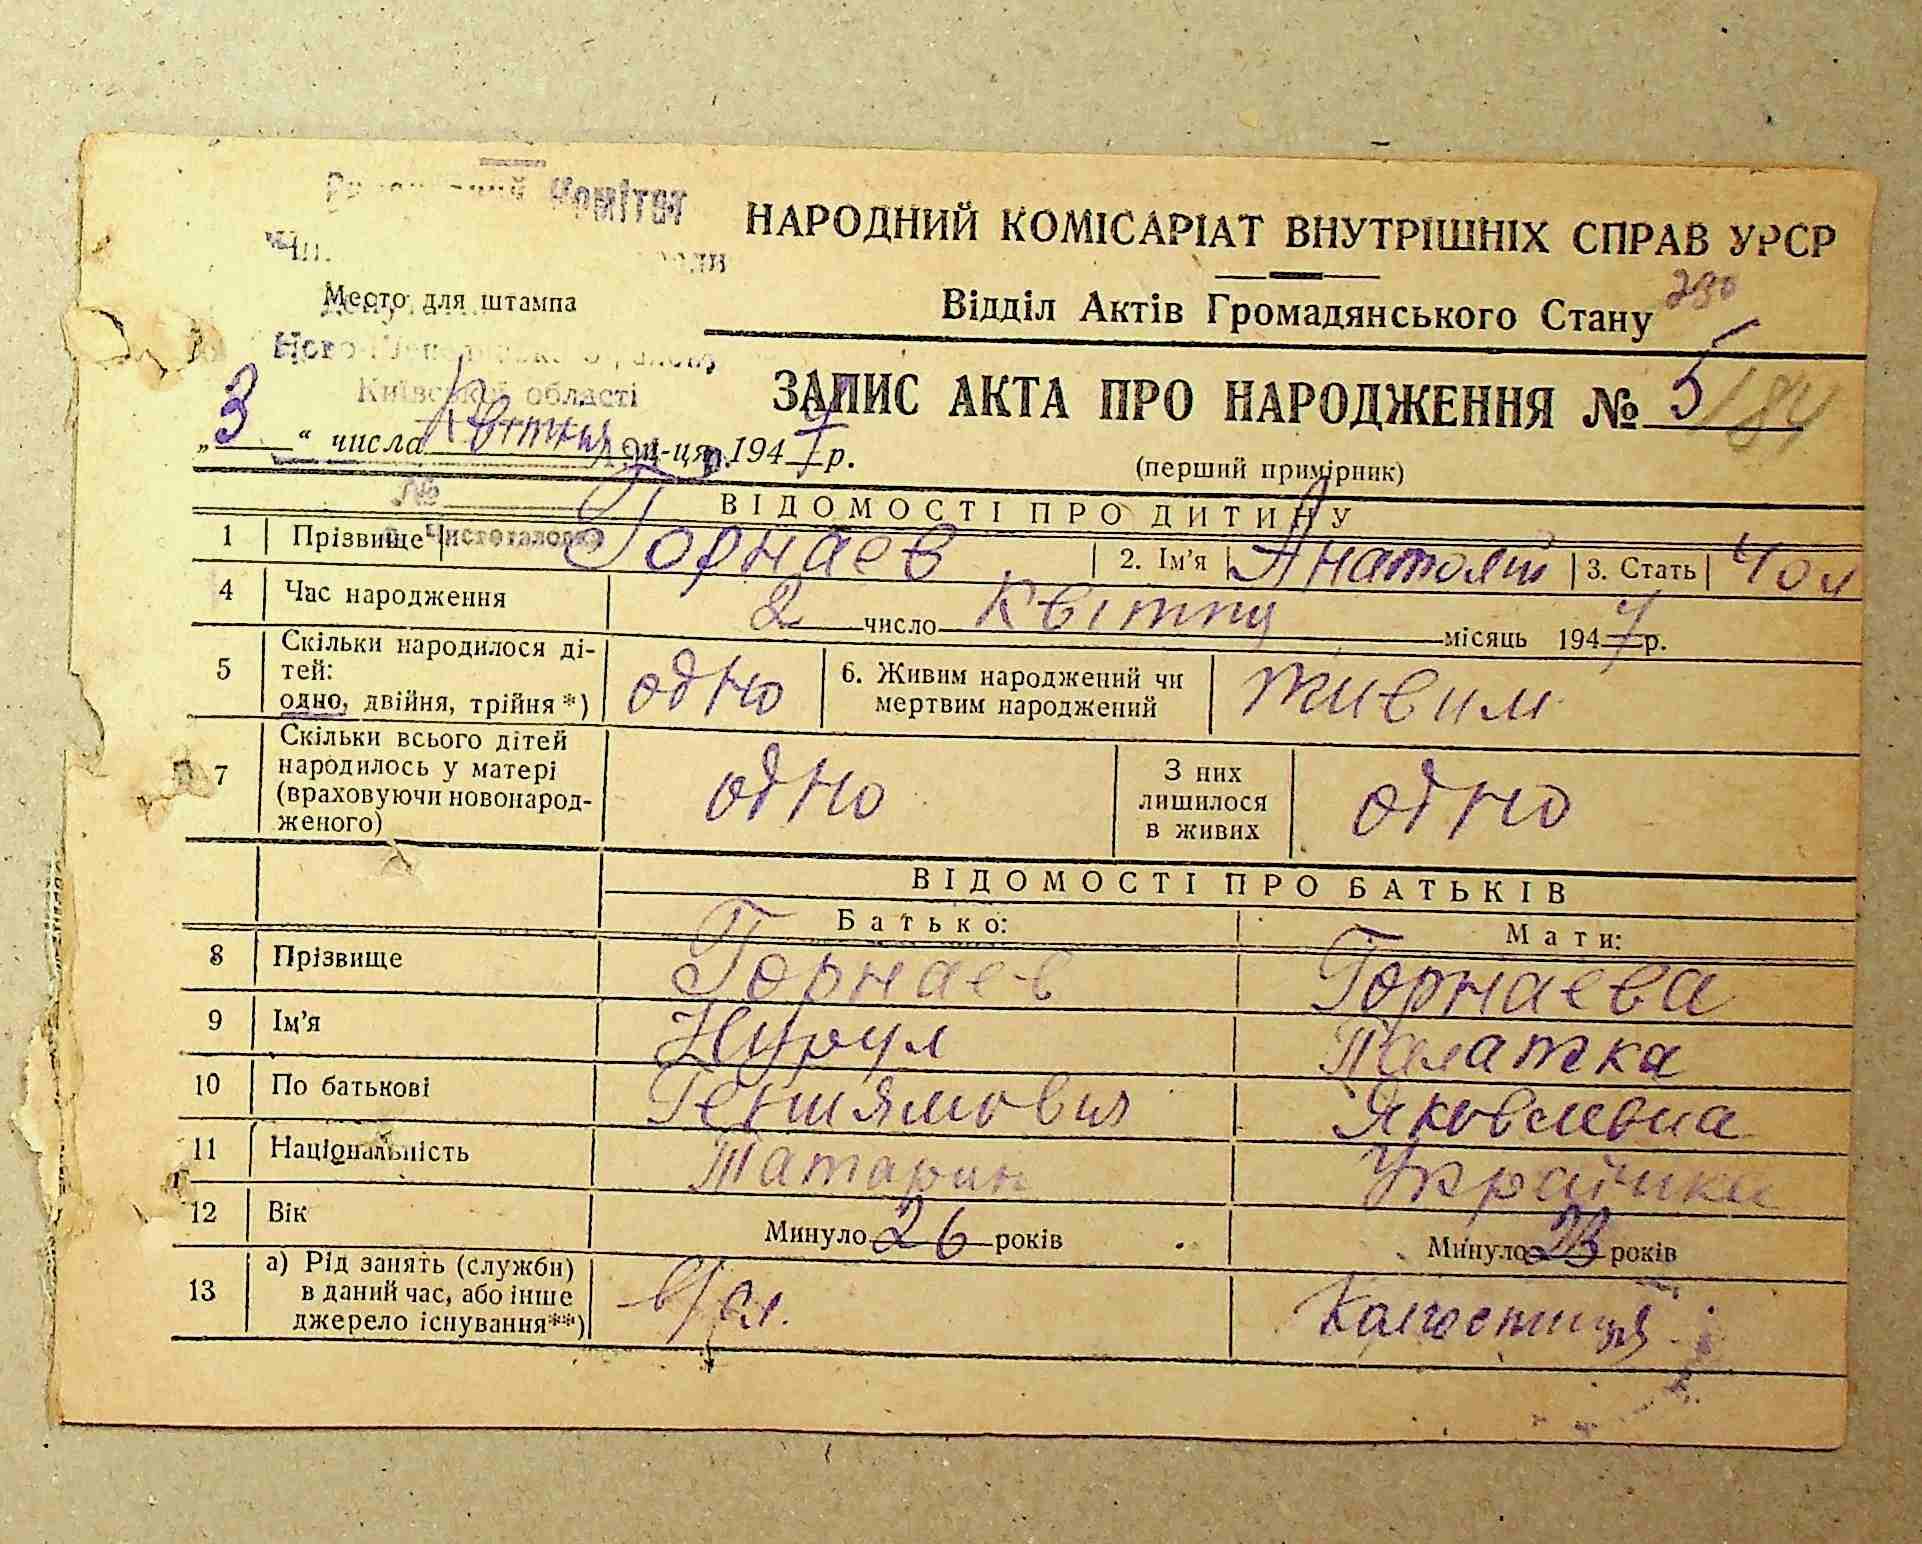 Комітет
НАРОДНИЙ КОМІСАРІАТ ВНУТРІШНІХ СПРАВ УРСР
Место для штампа
Відділ Актів Громадянського Стану 230
Київської області
ЗАПИС АКТА ПРО НАРОДЖЕННЯ № 5/84
„3“ числа Квітня м-ця 1947 р.
(перший примірник)
№
ВІДОМОСТІ ПРО ДИТИНУ
1 Прізвище Горнаев 2. Ім'я Анатолій 3. Стать Чол
4 Час народження 2 число Квітня місяць 1947 р.
5 Скільки народилося ді-
тей:
одно, двійня, трійня*) одно 6. Живим народжений чи
мертвим народжений живим
7 Скільки всього дітей
народилось у матері
(враховуючи новонарод-
женого) одно З них
лишилося
в живих одно
ВІДОМОСТІ ПРО БАТЬКІВ
Батько: Мати:
8 Прізвище Горнаев Горнаева
9 Ім'я Нурул Палажка
10 По батькові Яковлевна
11 Національність Татарин Українка
12 Вік Минуло 26 років Минуло 23 років
13 а) Рід занять (служби)
в даний час, або інше
джерело існування**) в/сл. Колгоспниця